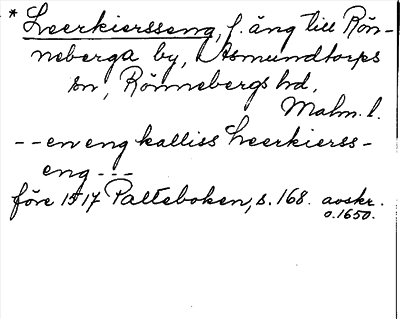 * Leerkiersseng, f. äng till Rön-
neberga by, Asmundtorps
sn, Rönnebergs hd,
Malm. l.
-- en eng kalliss Leerkierss-
eng ---
före 1517 Palteboken, s. 168. avskr.
o. 1650.